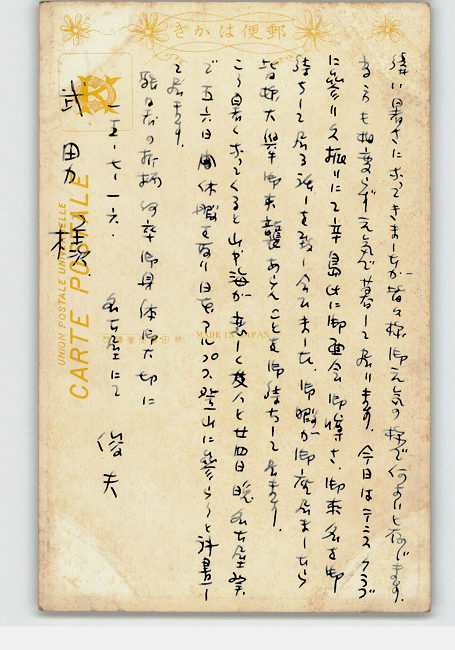 郵便はかき
偉い暑さになってきましたが皆々様御元気の様で何よりと存じます。
当方も相変らず元気で暮して居ります。今日はテニスクラブ
に参り久振りにて辛島氏に御面会御噂さ、御来名を御
待ちして居る話を致し合ひました。御暇が御座居ましたら
皆様大挙御来襲あらんことを御待ちして居ます。
こう暑くなってくると山や海が恋しく友人と廿四日晩名古屋発
で五六日間休暇を取り日本アルプス登山に参らうと計画し
て居ます。
酷暑の折柄何卒御身体御大切に
一五・七・一六 名古屋にて 俊夫
武田様
UNION POSTALE UNIVERSELLE
CARTE POSTALE
MADE IN JAPAN